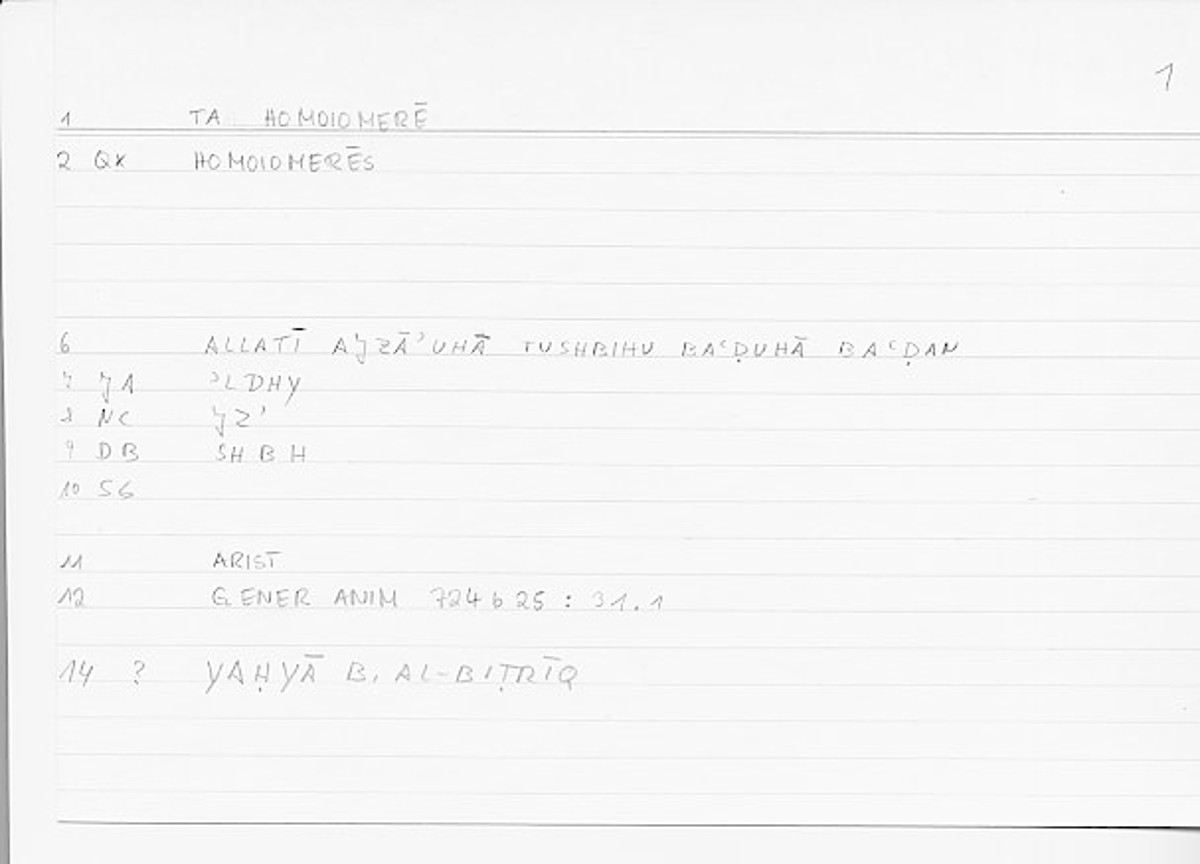 1
1 TA HOMOIOMERĒ
2 QX HOMOIOMERĒS
6 ALLATĪ AJZĀʾUHĀ TUSHBIHU BAʿḌUHĀ BAʿḌAN
7 JA ʾLDHY
8 NC JZʾ
9 DB SHBH
10 SG
11 ARIST
12 GENER ANIM 724 b 25 : 31.1
14 ? YAḤYĀ B. AL-BIṬRĪQ